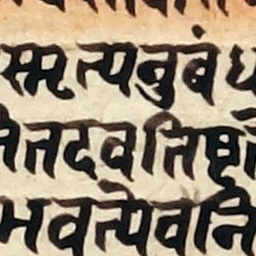 स्मृत्यनुबंध
तदवतिष्ठते
भवत्येवनि